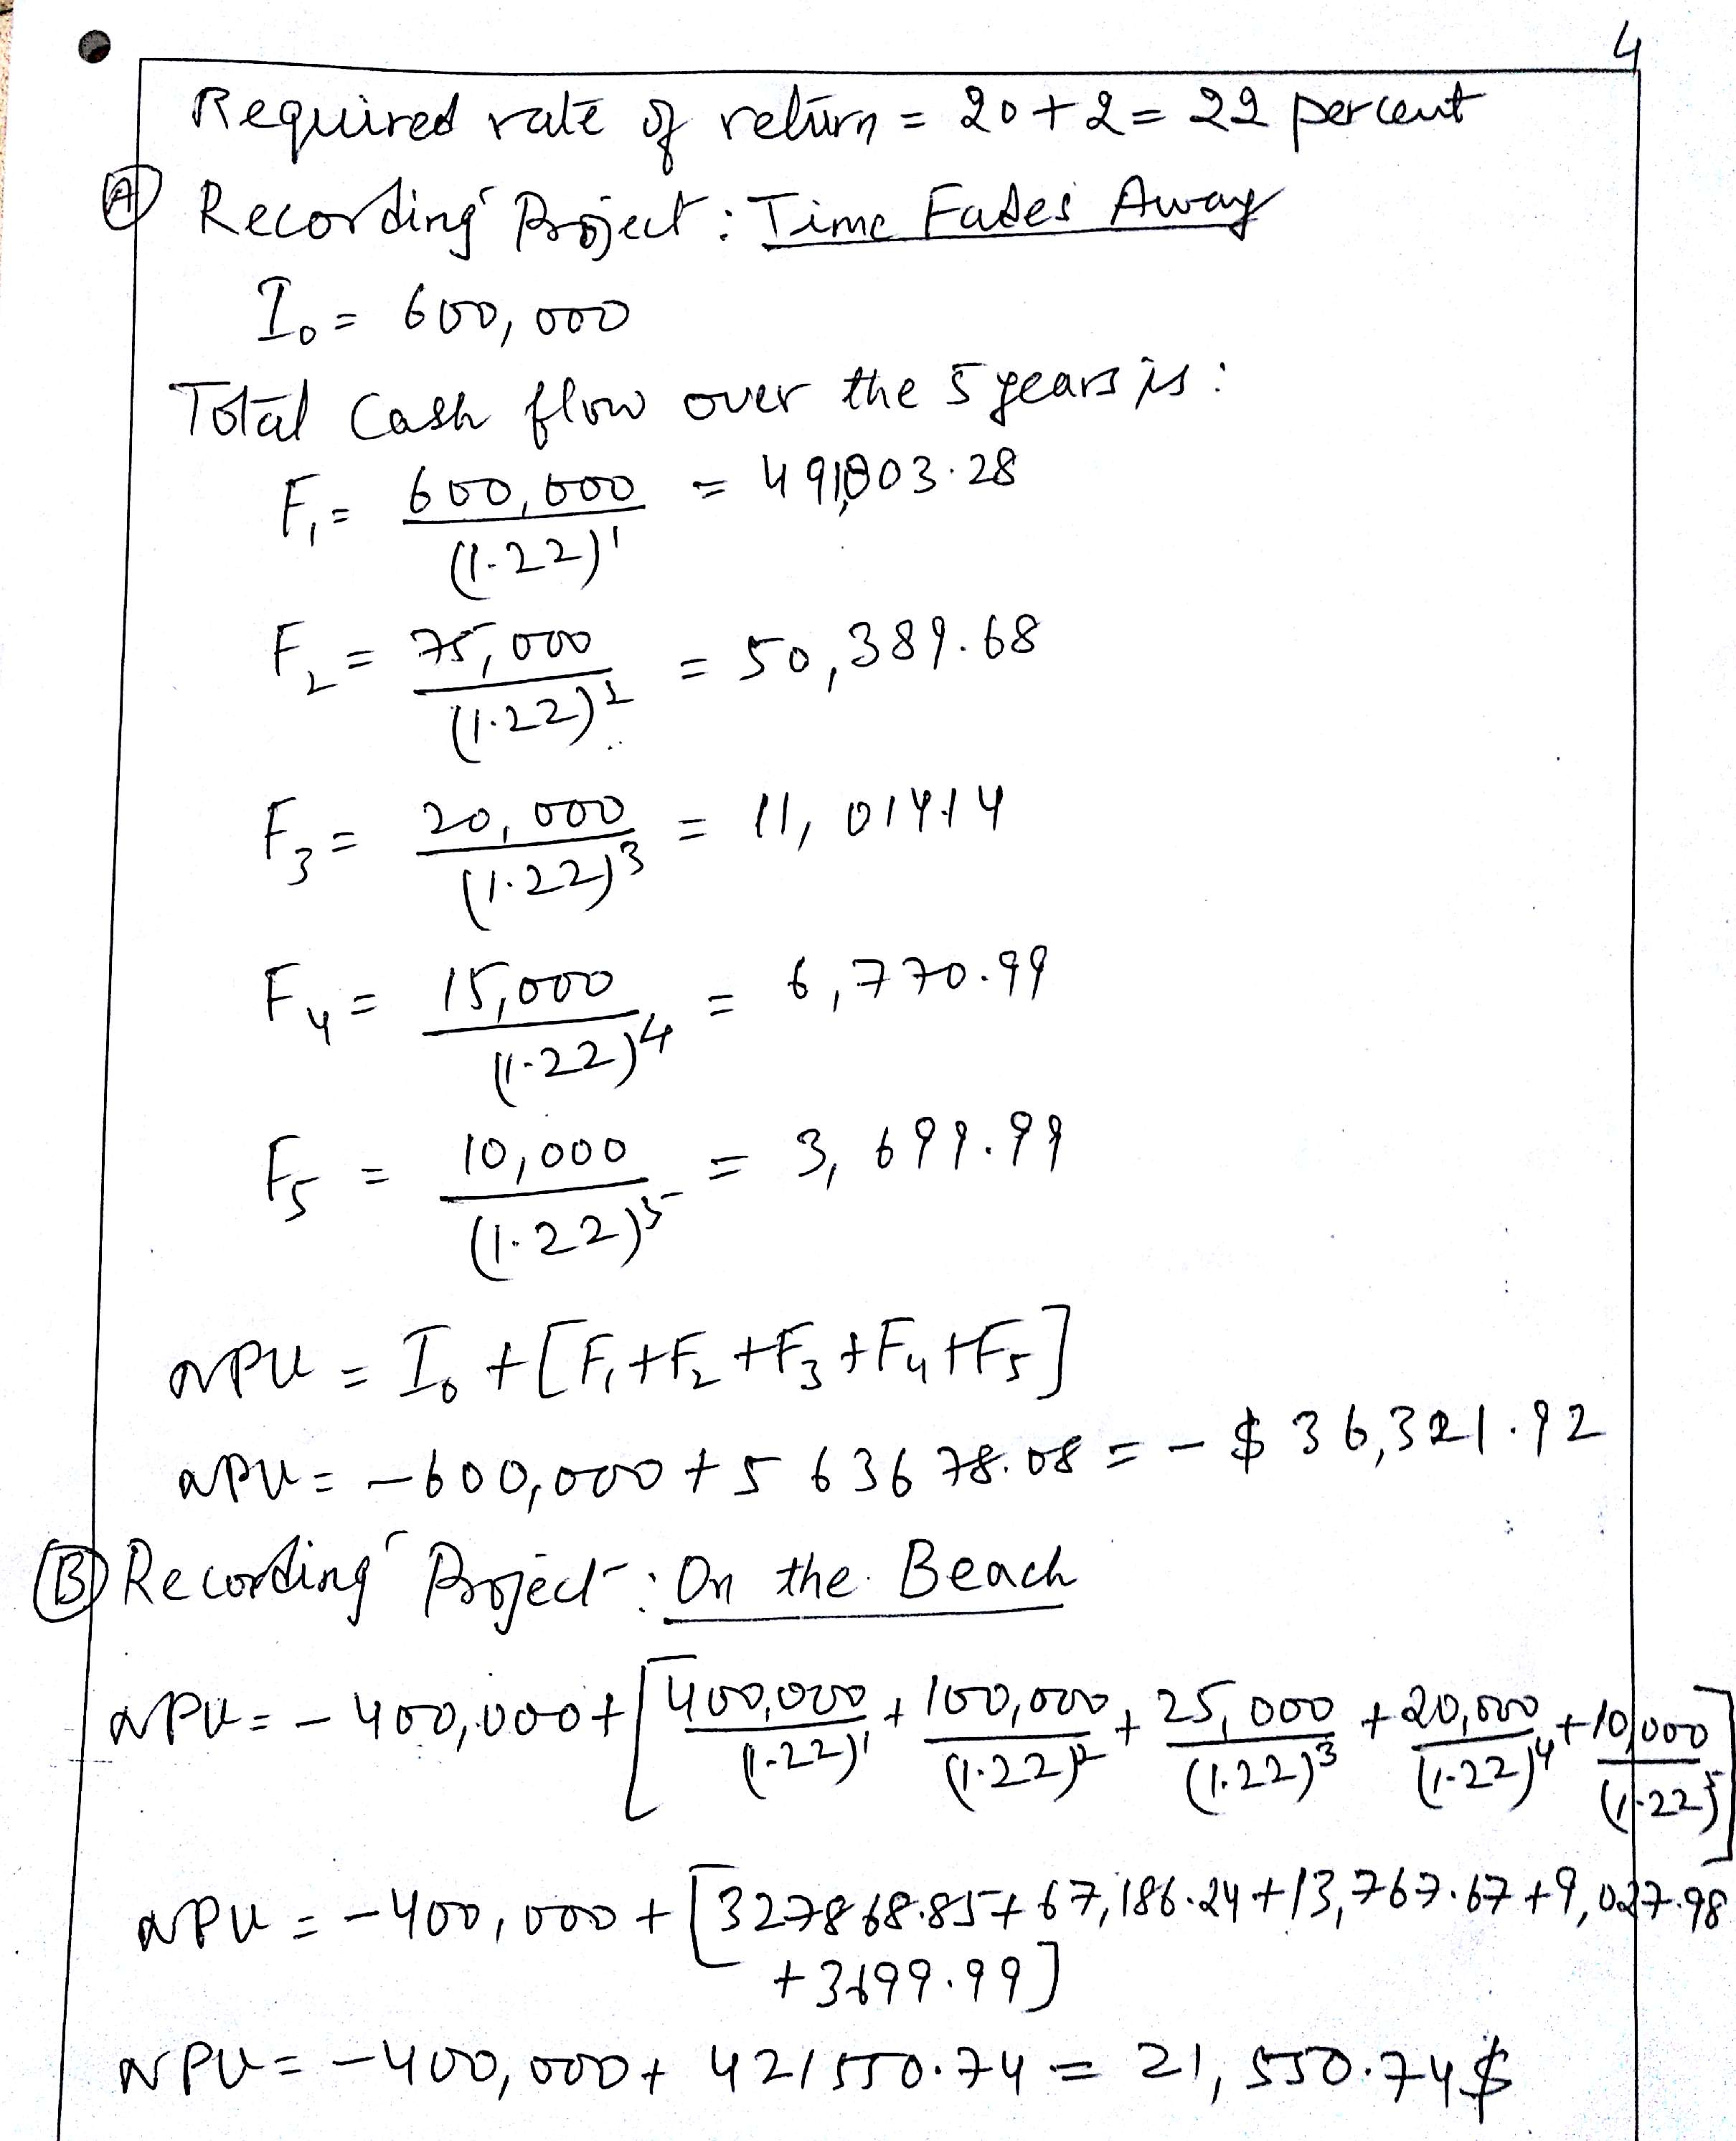 4
Required rate of return = 20+2= 22 percent
(A) Recording Project : Time Fades Away
I₀ = 600,000
Total Cash flow over the 5 years is :
F₁ = 600,000/(1.22)¹ = 491,803.28
F₂ = 75,000/(1.22)² = 50,389.68
F₃ = 20,000/(1.22)³ = 11,014.14
F₄ = 15,000/(1.22)⁴ = 6,770.99
F₅ = 10,000/(1.22)⁵ = 3,699.99
NPV = I₀ + [F₁+F₂+F₃+F₄+F₅]
NPV = -600,000 + 563678.08 = - $ 36,321.92
(B) Recording Project : On the Beach
NPV = - 400,000 + [400,000/(1.22)¹ + 100,000/(1.22)² + 25,000/(1.22)³ + 20,000/(1.22)⁴ + 10,000/(1.22)⁵]
NPV = -400,000 + [327868.85 + 67,186.24 + 13,767.67 + 9,027.98
+ 3699.99]
NPV = -400,000 + 421550.74 = 21,550.74 $